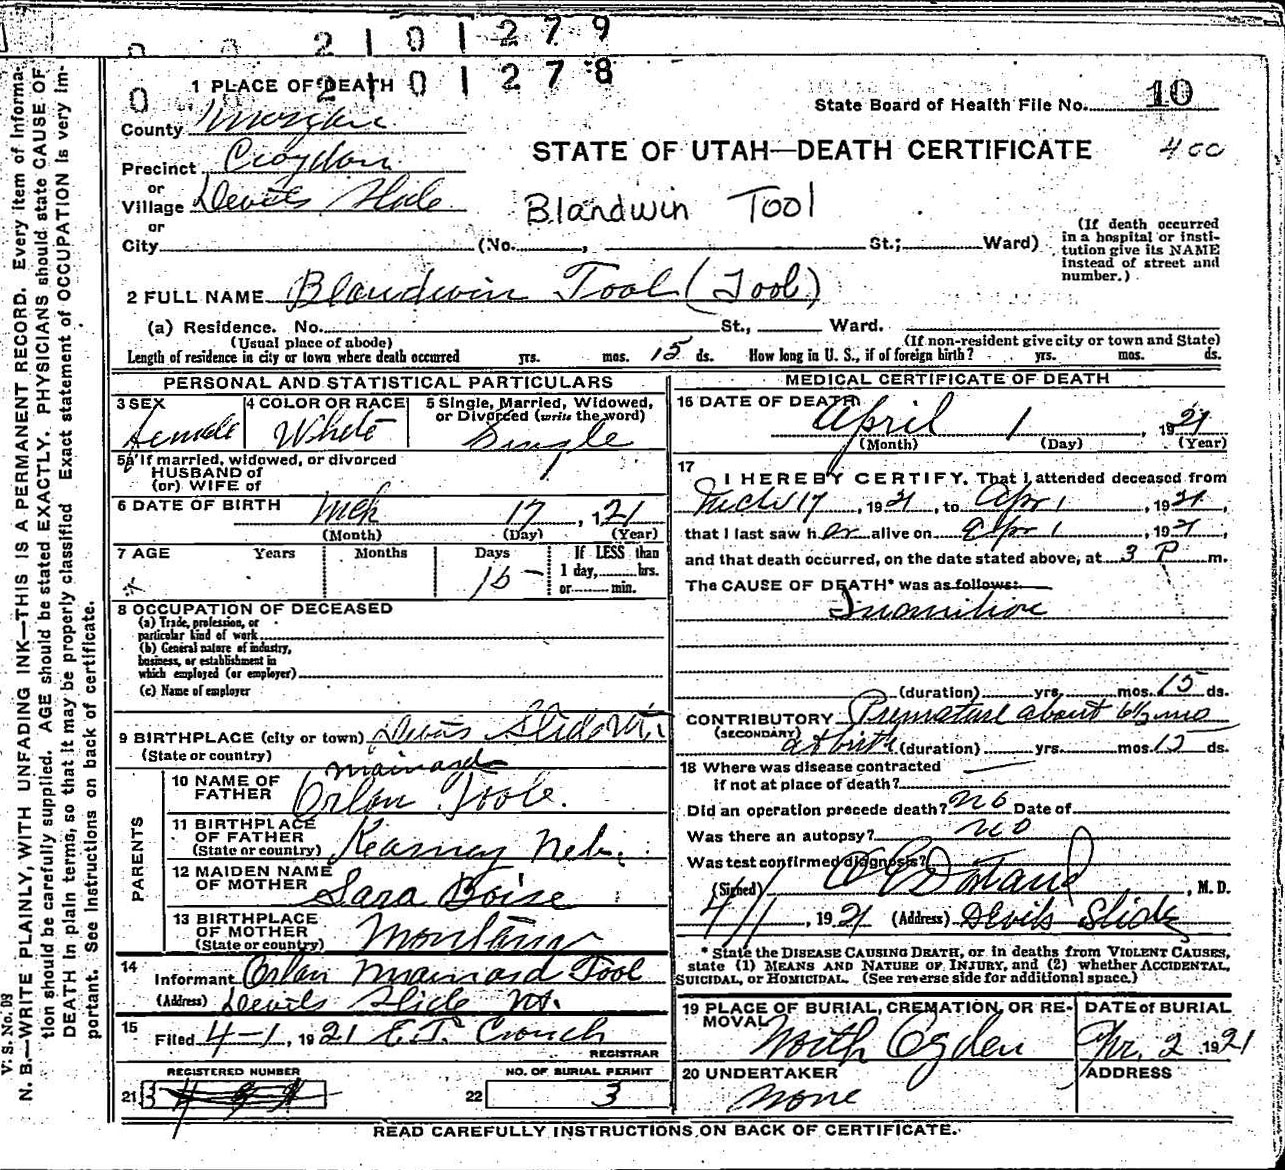 0 0 2 1 0 1 2 7 9
0 2 1 0 1 2 7 8
1 PLACE OF DEATH
County Morgan
Precinct Croydon
or
Village Devils Slide
or
City (No. , St.; Ward)
State Board of Health File No. 10
STATE OF UTAH—DEATH CERTIFICATE 400
Blandwin Tool
(If death occurred
in a hospital or insti-
tution give its NAME
instead of street and
number.)
2 FULL NAME Blandwin Tool (Tool)
(a) Residence. No. St., Ward.
(Usual place of abode) (If non-resident give city or town and State)
Length of residence in city or town where death occurred yrs. mos. 15 ds. How long in U. S., if of foreign birth? yrs. mos. ds.
PERSONAL AND STATISTICAL PARTICULARS
3 SEX 4 COLOR OR RACE 5 Single, Married, Widowed,
or Divorced (write the word)
Female White Single
5a If married, widowed, or divorced
HUSBAND of
(or) WIFE of
6 DATE OF BIRTH Mch 17, 121
(Month) (Day) (Year)
7 AGE Years Months Days If LESS than
15 1 day, hrs.
or min.
8 OCCUPATION OF DECEASED
(a) Trade, profession, or
particular kind of work
(b) General nature of industry,
business, or establishment in
which employed (or employer)
(c) Name of employer
9 BIRTHPLACE (city or town) Devils Slide Ut.
(State or country)
PARENTS
10 NAME OF
FATHER
Mainard
Orlan Toole.
11 BIRTHPLACE
OF FATHER
(State or country) Kearney Neb.
12 MAIDEN NAME
OF MOTHER Sara Boise
13 BIRTHPLACE
OF MOTHER
(State or country) Montana
14
Informant Orlan Mainard Tool
(Address) Devils Slide Ut.
15
Filed 4-1, 1921 E.T. Crouch
REGISTRAR
REGISTERED NUMBER
21 3
NO. OF BURIAL PERMIT
22 3
MEDICAL CERTIFICATE OF DEATH
16 DATE OF DEATH
April 1, 1921
(Month) (Day) (Year)
17
I HEREBY CERTIFY, That I attended deceased from
Mch 17, 1921, to Apr 1, 1921,
that I last saw her alive on Apr 1, 1921
and that death occurred, on the date stated above, at 3 P m.
The CAUSE OF DEATH* was as follows:
Inanition
(duration) yrs. mos. 15 ds.
CONTRIBUTORY Premature about 6½ mo
(SECONDARY)
at birth (duration) yrs. mos. 15 ds.
18 Where was disease contracted
if not at place of death?
Did an operation precede death? No Date of
Was there an autopsy? No
Was test confirmed diagnosis?
(Signed) , M. D.
4/1, 1921 (Address) Devils Slide
* State the DISEASE CAUSING DEATH, or in deaths from VIOLENT CAUSES,
state (1) MEANS AND NATURE OF INJURY, and (2) whether ACCIDENTAL,
SUICIDAL, or HOMICIDAL. (See reverse side for additional space.)
19 PLACE OF BURIAL, CREMATION, OR RE-
MOVAL
North Ogden
DATE of BURIAL
Apr. 2 1921
20 UNDERTAKER
None
ADDRESS
READ CAREFULLY INSTRUCTIONS ON BACK OF CERTIFICATE.
V. S. No. D9
N. B.—WRITE PLAINLY, WITH UNFADING INK—THIS IS A PERMANENT RECORD. Every item of informa-
tion should be carefully supplied. AGE should be stated EXACTLY. PHYSICIANS should state CAUSE OF
DEATH in plain terms, so that it may be properly classified. Exact statement of OCCUPATION is very im-
portant. See instructions on back of certificate.